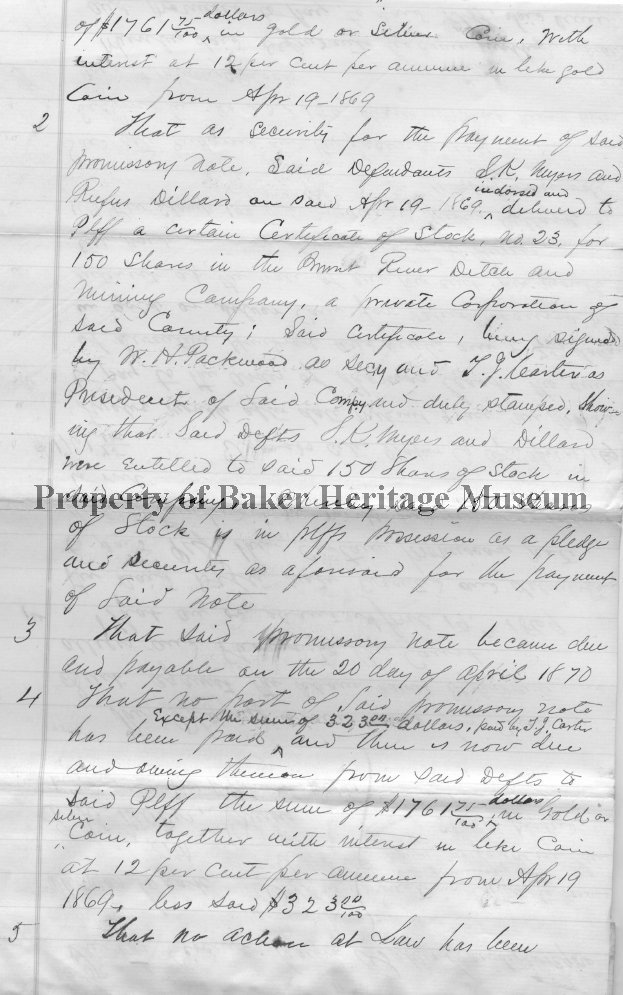 of $1761 75/100 dollars in gold or Silver Coin, With
interest at 12 per cent per annum in like gold
Coin from Apr 19-1869
2 That as security for the payment of said
promissory note, Said Defendants S.K. Myers and
Rufus Dillard on said Apr 19-1869, indorsed and delivered to
Plff a certain Certificate of Stock, No. 23, for
150 Shares in the Burnt River Ditch and
Mining Company, a private Corporation of
said County; Said Certificate, being signed
by W. H. Packwood as Secy and T. J. Carter as
President of Said Compy and duly stamped, Show-
ing that Said Defts S. K. Myers and Dillard
were entitled to said 150 Shares of Stock in
said Company,
Property of Baker Heritage Museum
of Stock is in plffs possession as a pledge
and security as aforesaid for the payment
of Said Note
3 That said promissory note became due
and payable on the 20 day of April 1870
4 That no part of Said promissory note
Except the sum of 323 00 dollars, paid by T. J. Carter
has been paid and there is now due
and owing thereon from said Defts to
said Plff the sum of $1761 75/100 dollars, in Gold or
silver Coin, together with interest in like Coin
at 12 per cent per annum from Apr 19
1869, less said $323 00/100
5 That no action at Law has been